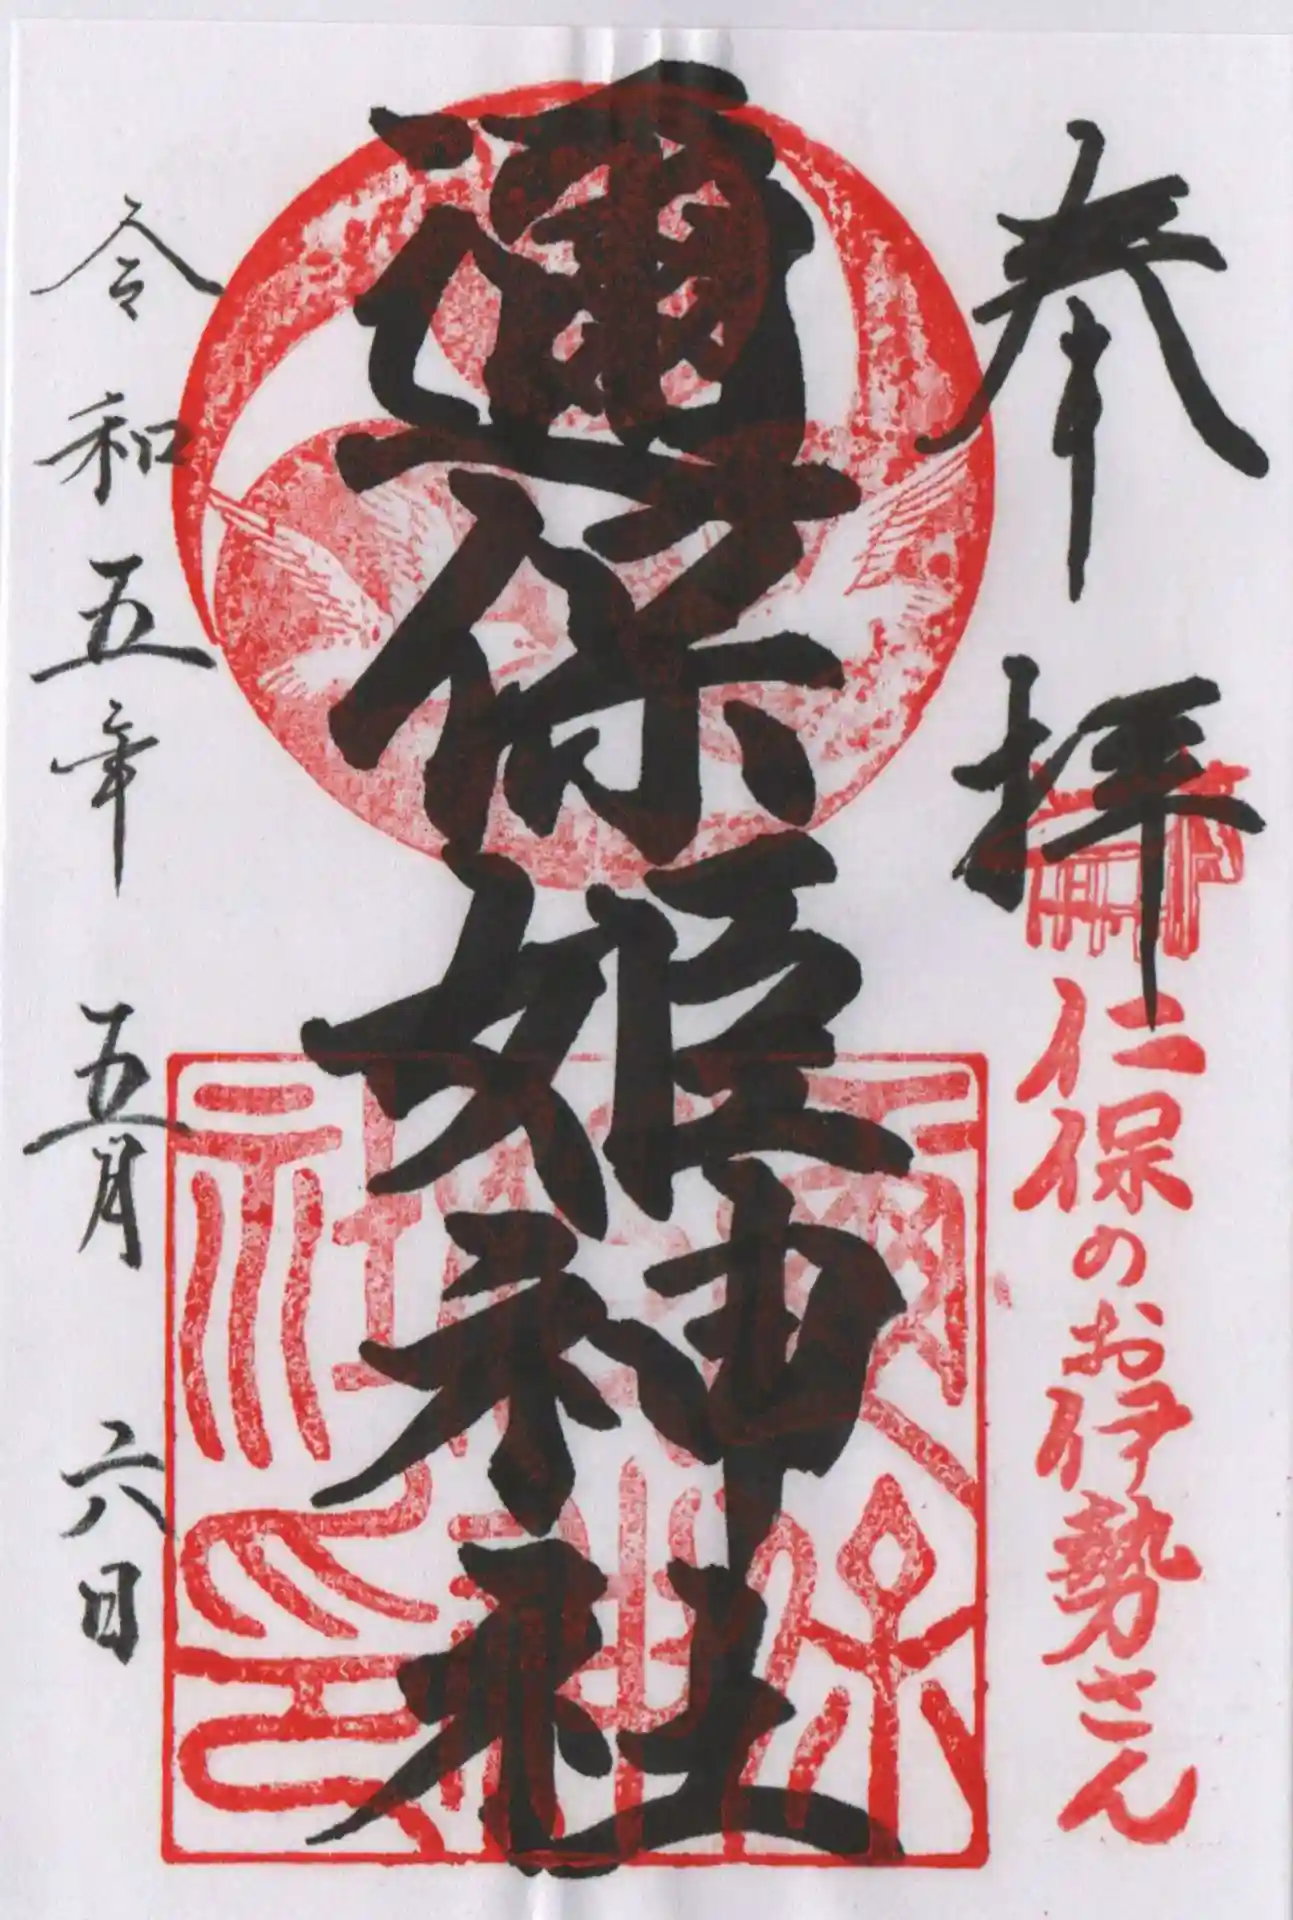 奉拝
仁保のお伊勢さん
邇保姫神社
令和五年 五月 六日